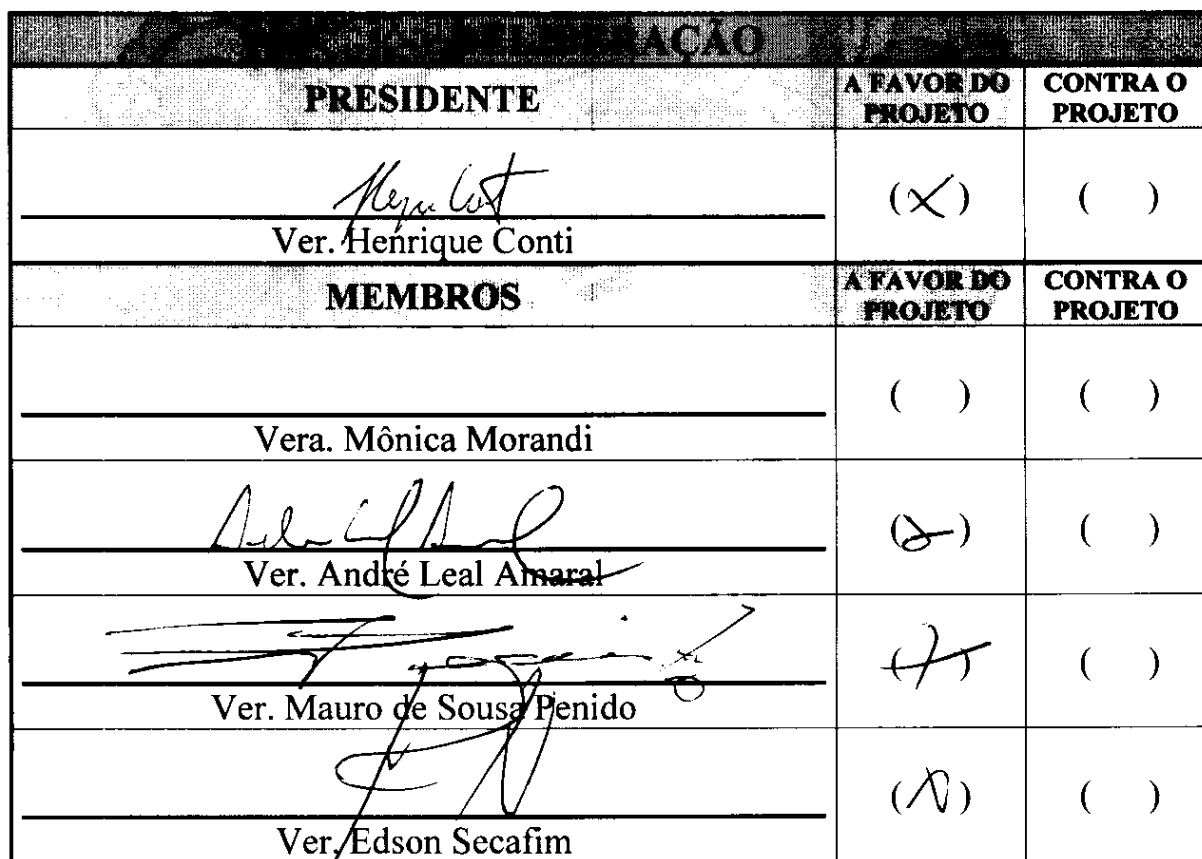 PRESIDENTE
A FAVOR DO PROJETO
CONTRA O PROJETO
(X)
( )
Ver. Henrique Conti
MEMBROS
A FAVOR DO PROJETO
CONTRA O PROJETO
( )
( )
Vera. Mônica Morandi
( )
Ver. André Leal Amaral
( )
Ver. Mauro de Sousa Penido
( )
Ver. Edson Secafim